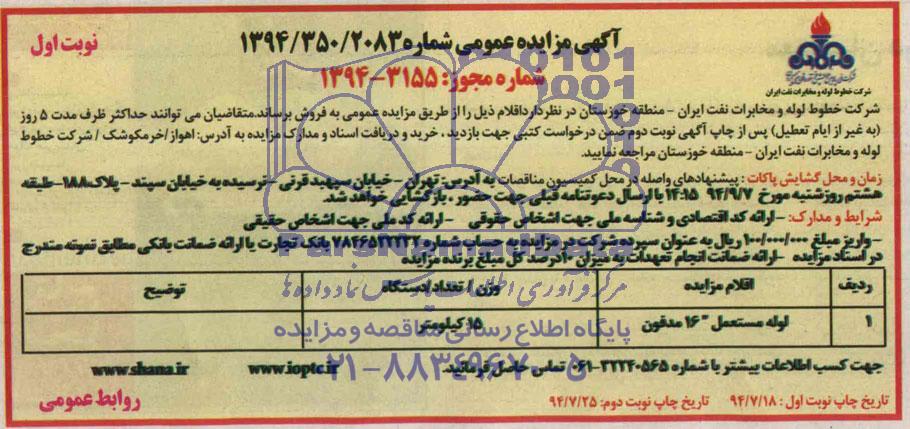 آگهی مزایده عمومی شماره ۱۳۹۴/۳۵۰/۲۰۸۳
نوبت اول
شماره مجوز: ۳۱۵۵-۱۳۹۴
شرکت خطوط لوله و مخابرات نفت ایران
شرکت خطوط لوله و مخابرات نفت ایران - منطقه خوزستان در نظر دارد اقلام ذیل را از طریق مزایده عمومی به فروش برساند. متقاضیان می توانند حداکثر ظرف مدت ۵ روز
(به غیر از ایام تعطیل) پس از چاپ آگهی نوبت دوم ضمن درخواست کتبی جهت بازدید ، خرید و دریافت اسناد و مدارک مزایده به آدرس: اهواز/خرمکوشک / شرکت خطوط
لوله و مخابرات نفت ایران - منطقه خوزستان مراجعه نمایید.
زمان و محل گشایش پاکات : پیشنهادهای واصله در محل کمیسیون مناقصات به آدرس: تهران - خیابان سپهبد قرنی - نرسیده به خیابان سپند - پلاک ۱۸۸- طبقه
هشتم روز شنبه مورخ ۹۴/۹/۷ ۱۴:۱۵ با ارسال دعوتنامه قبلی جهت حضور ، بازگشایی خواهد شد.
شرایط و مدارک: - ارائه کد اقتصادی و شناسه ملی جهت اشخاص حقوقی - ارائه کد ملی جهت اشخاص حقیقی
- واریز مبلغ ۱۰۰/۰۰۰/۰۰۰ ریال به عنوان سپرده شرکت در مزایده به حساب شماره بانک تجارت یا ارائه ضمانت بانکی مطابق نمونه مندرج
در اسناد مزایده - ارائه ضمانت انجام تعهدات به میزان ۱۰ درصد کل مبلغ برنده مزایده
ردیف اقلام مزایده وزن / تعداد/دستگاه توضیح
۱ لوله مستعمل "۱۶ مدفون ۱۵ کیلومتر
مرکز فرآوری اطلاعات پارس نماد داده ها
پایگاه اطلاع رسانی مناقصه و مزایده
۰۲۱-۸۸۳۴۹۶۷۰-۵
جهت کسب اطلاعات بیشتر با شماره ۳۲۲۴۰۵۶۵-۰۶۱ تماس حاصل فرمائید. www.ioptc.ir www.shana.ir
تاریخ چاپ نوبت اول : ۹۴/۷/۱۸ تاریخ چاپ نوبت دوم: ۹۴/۷/۲۵
روابط عمومی